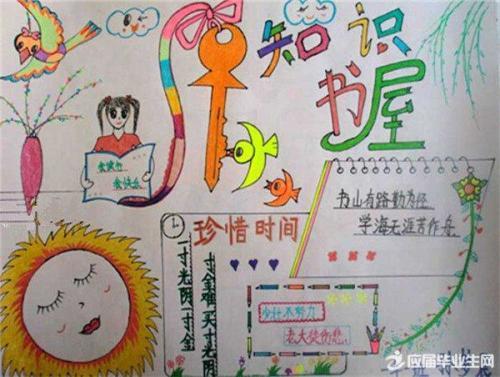 知识
书屋
书山有路勤为径
学海无涯苦作舟
珍惜时间
一寸光阴一寸金
寸金难买寸光阴
少壮不努力
老大徒伤悲
应届毕业生网